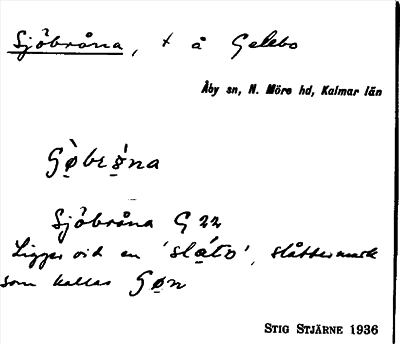 Sjöbråna, t å Gelebo
Åby sn, N. Möre hd, Kalmar län
Gø̀brǿna
Sjöbråna G 22
Ligger vid en 'slåto', slåttermark
som kallas Gøn
STIG STJÄRNE 1936